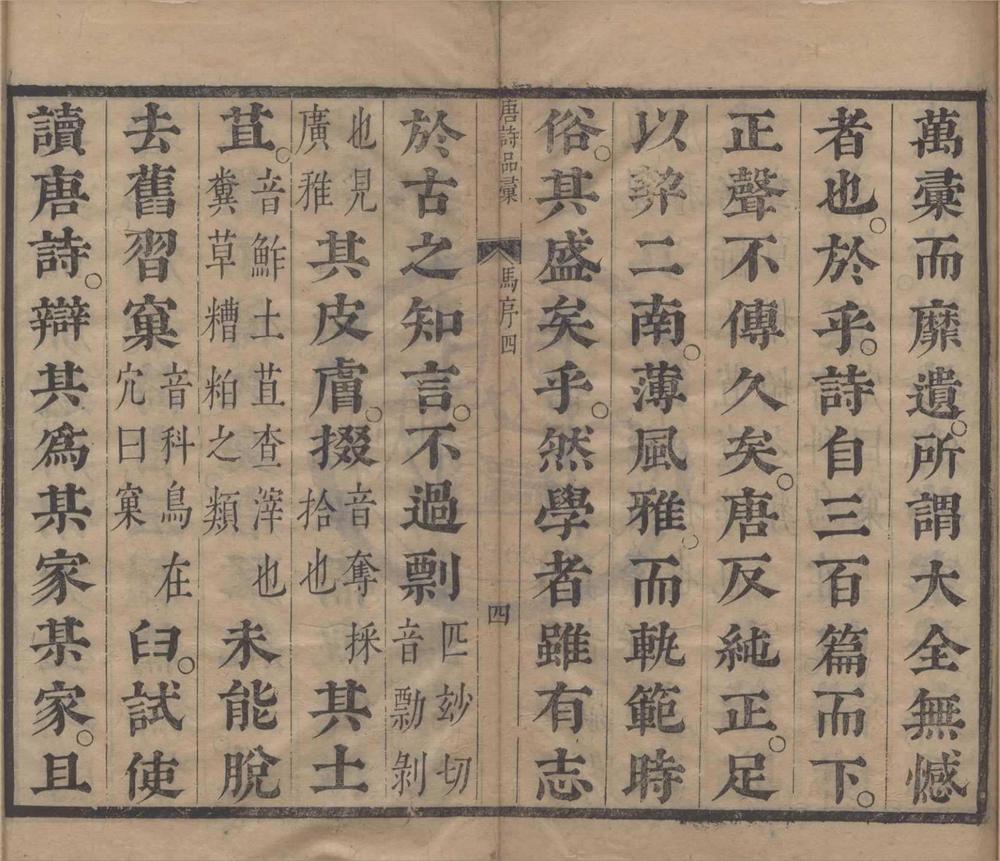 萬彙而靡遺。所謂大全無憾
者也。於乎。詩自三百篇而下。
正聲不傳久矣。唐反純正。足
以二南。薄風雅。而軌範時
俗。其盛矣乎。然學者雖有志
唐詩品彙 馬序四 四
於古之知言。不過剽匹玅切音勡剝
也見廣雅其皮膚。掇音奪採拾也其土
苴。音鮓土苴查滓也糞草糟粕之類未能脫
去舊習窠音科鳥在穴曰窠臼。試使
讀唐詩。辯其爲某家某家。且